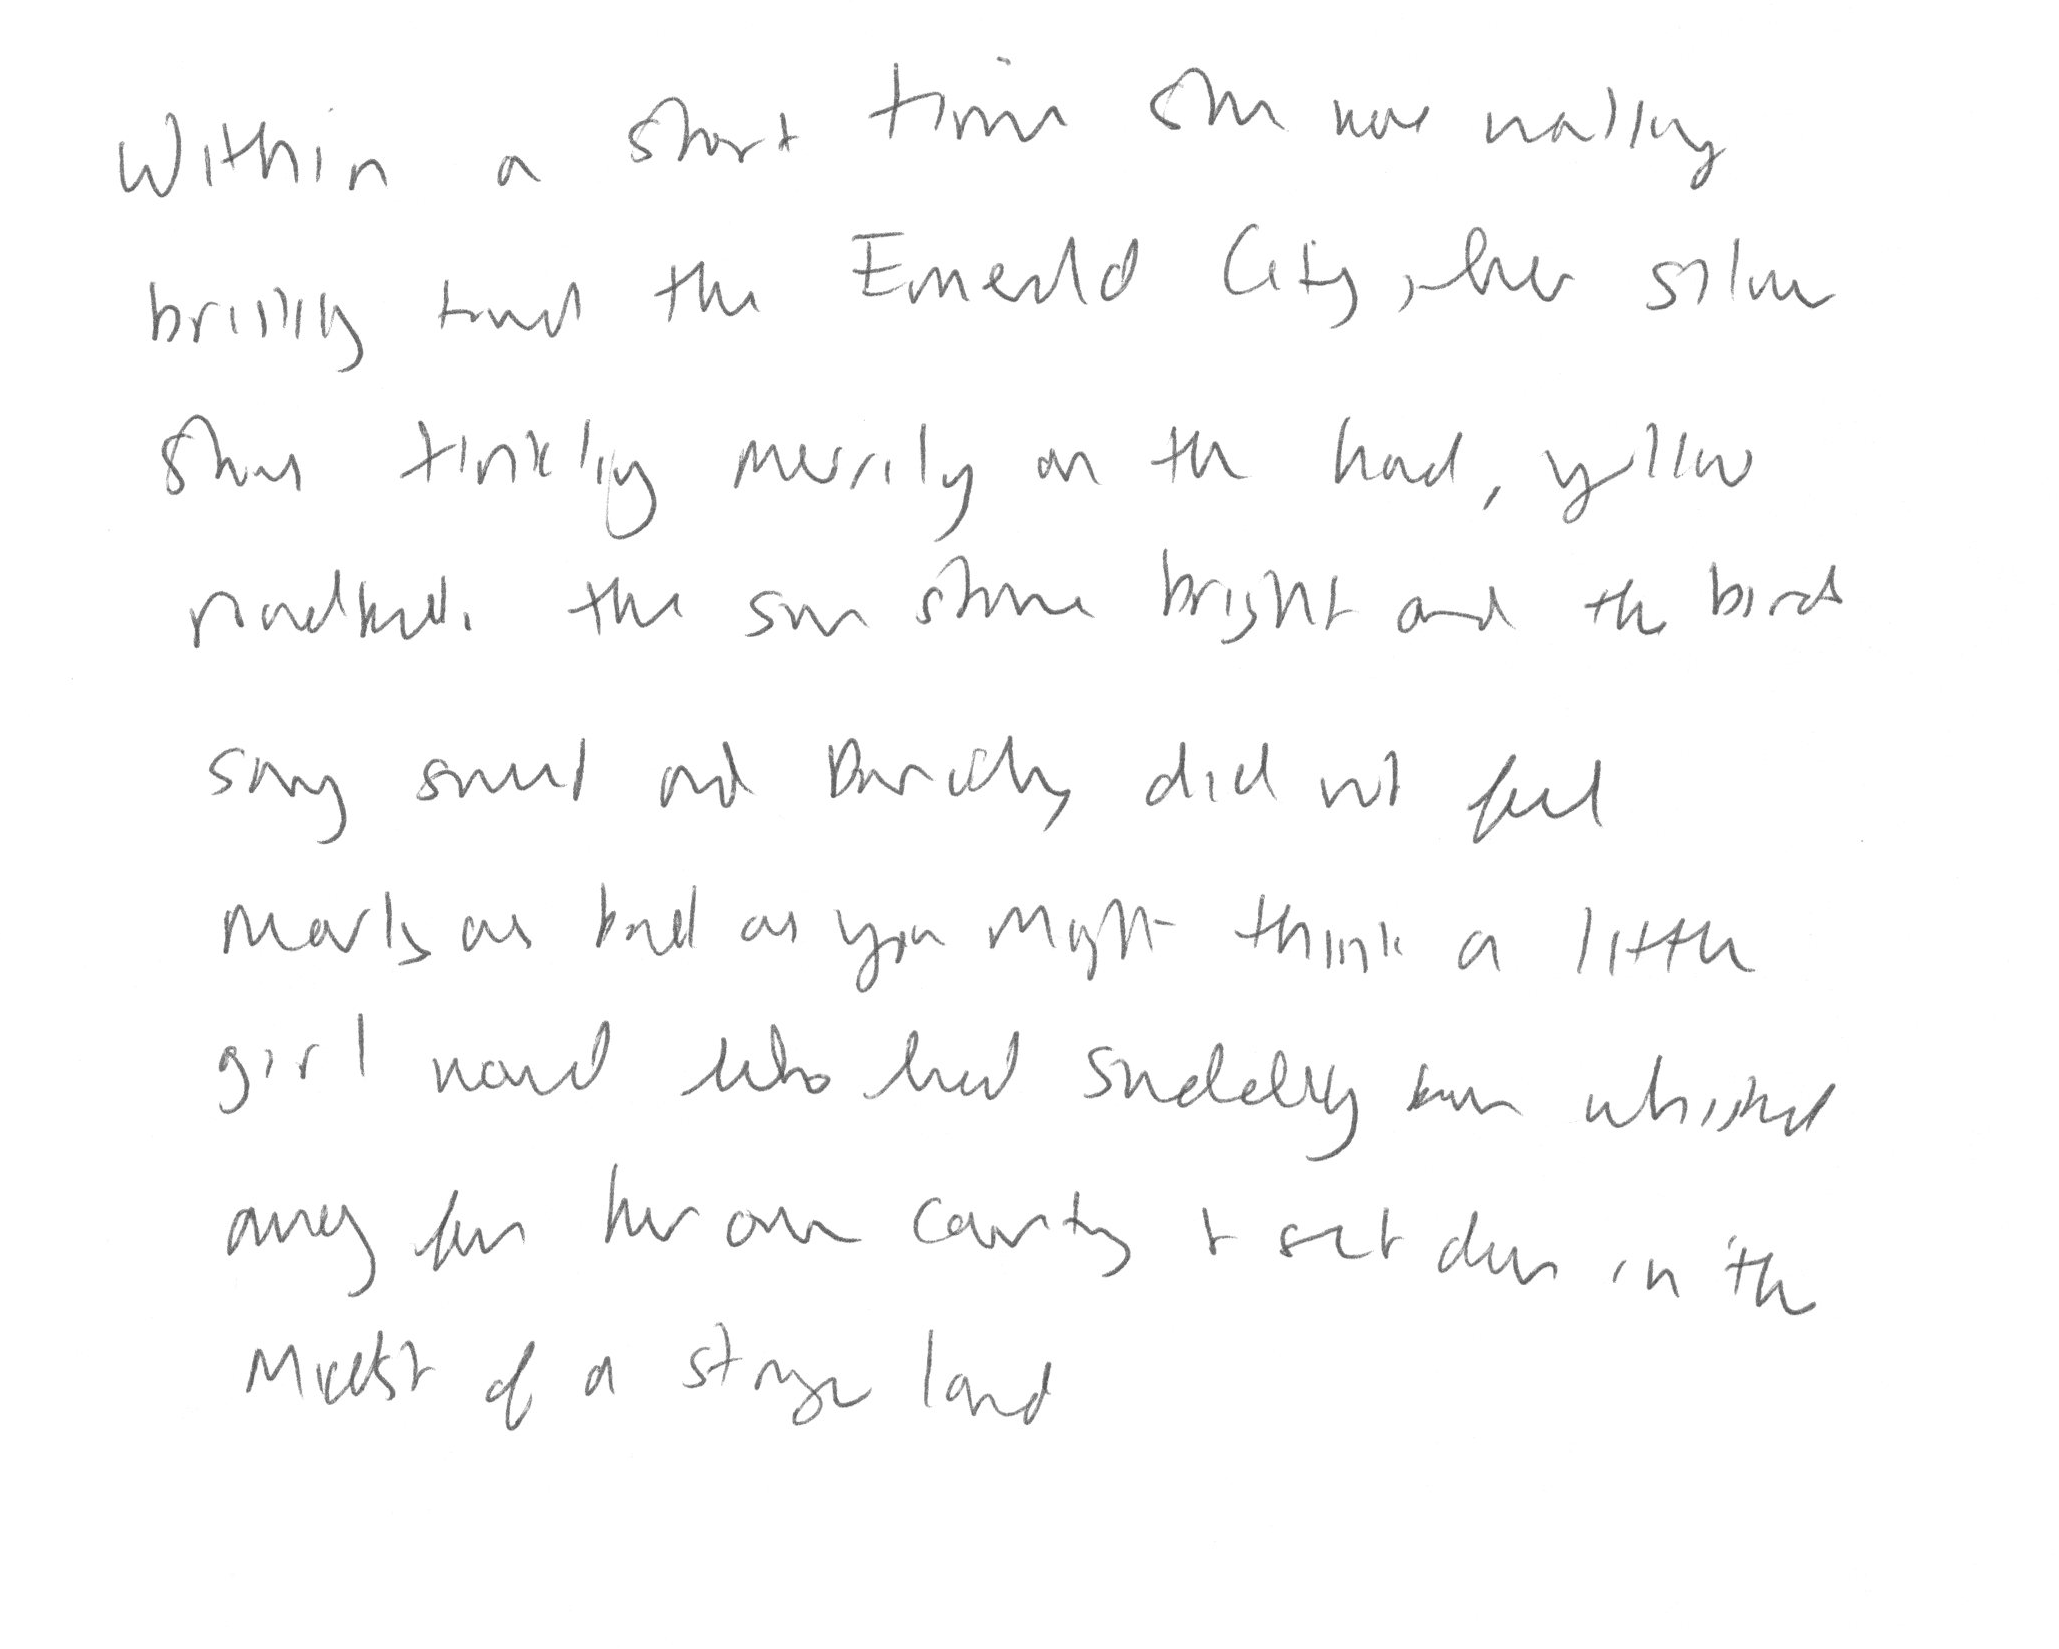 Within a short time she was walking
briskly toward the Emerald City, her silver
shoes tinkling merrily on the hard, yellow
roadbed. the sun shone bright and the birds
sang sweet and Dorothy did not feel
nearly as bad as you might think a little
girl would who had suddenly been whisked
away from her own country & set down in the
midst of a strange land